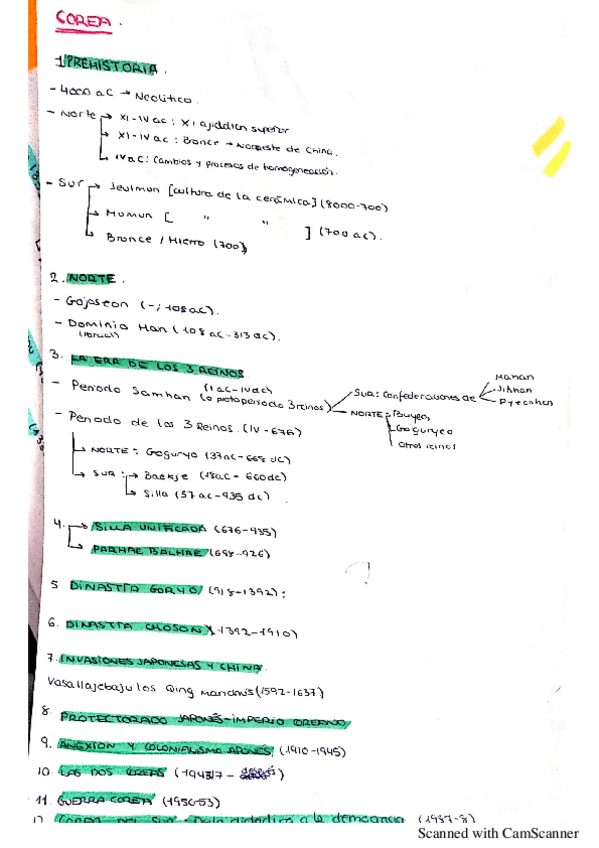 COREA.
1 PREHISTORIA.
- 4000 aC → Neolítico.
- Norte → XI-IV ac: Xiajiadian superior
→ XI-IV ac: Bronce → Noreste de China.
→ IV aC: Cambios y procesos de homogeneación.
- Sur → Jeulmun [cultura de la cerámica] (8000-700)
→ Mumun [ " " ] (700 ac).
→ Bronce / Hierro (700)
2. NORTE.
- Gojoseon (-; 108 ac).
- Dominio Han (108 ac - 313 dc).
(parcial)
3. LA ERA DE LOS 3 REINOS
- Periodo Samhan (1 ac - IV dc) (o protoperiodo 3 reinos) → Sur: Confederaciones de Mahan
Jinhan
Pyeonhan
NORTE: Buyeo,
Goguryeo
otros reinos
- Periodo de los 3 Reinos. (IV - 676)
→ NORTE: Goguryo (37ac - 668 dC)
→ SUR: → Baekje (18ac - 660dc)
→ Silla (57 ac - 935 dc)
4. → SILLA UNIFICADA (676-935)
→ PARHAE BALHAE (698-926)
5 DINASTÍA GORYO (918-1392):
6. DINASTIA CHOSON (1392-1910)
7. INVASIONES JAPONESAS Y CHINA.
Vasallaje bajo los Qing Manchús (1592-1637)
8 PROTECTORADO JAPONÉS-IMPERIO COREANO
9. ANEXION Y COLONIALISMO JAPONES, (1910-1945)
10 LAS DOS COREAS (1945/7 - después)
11. GUERRA COREA (1950-53)
12 COREA DEL SUR - De la dictadura a la democracia (1987-8)
Scanned with CamScanner